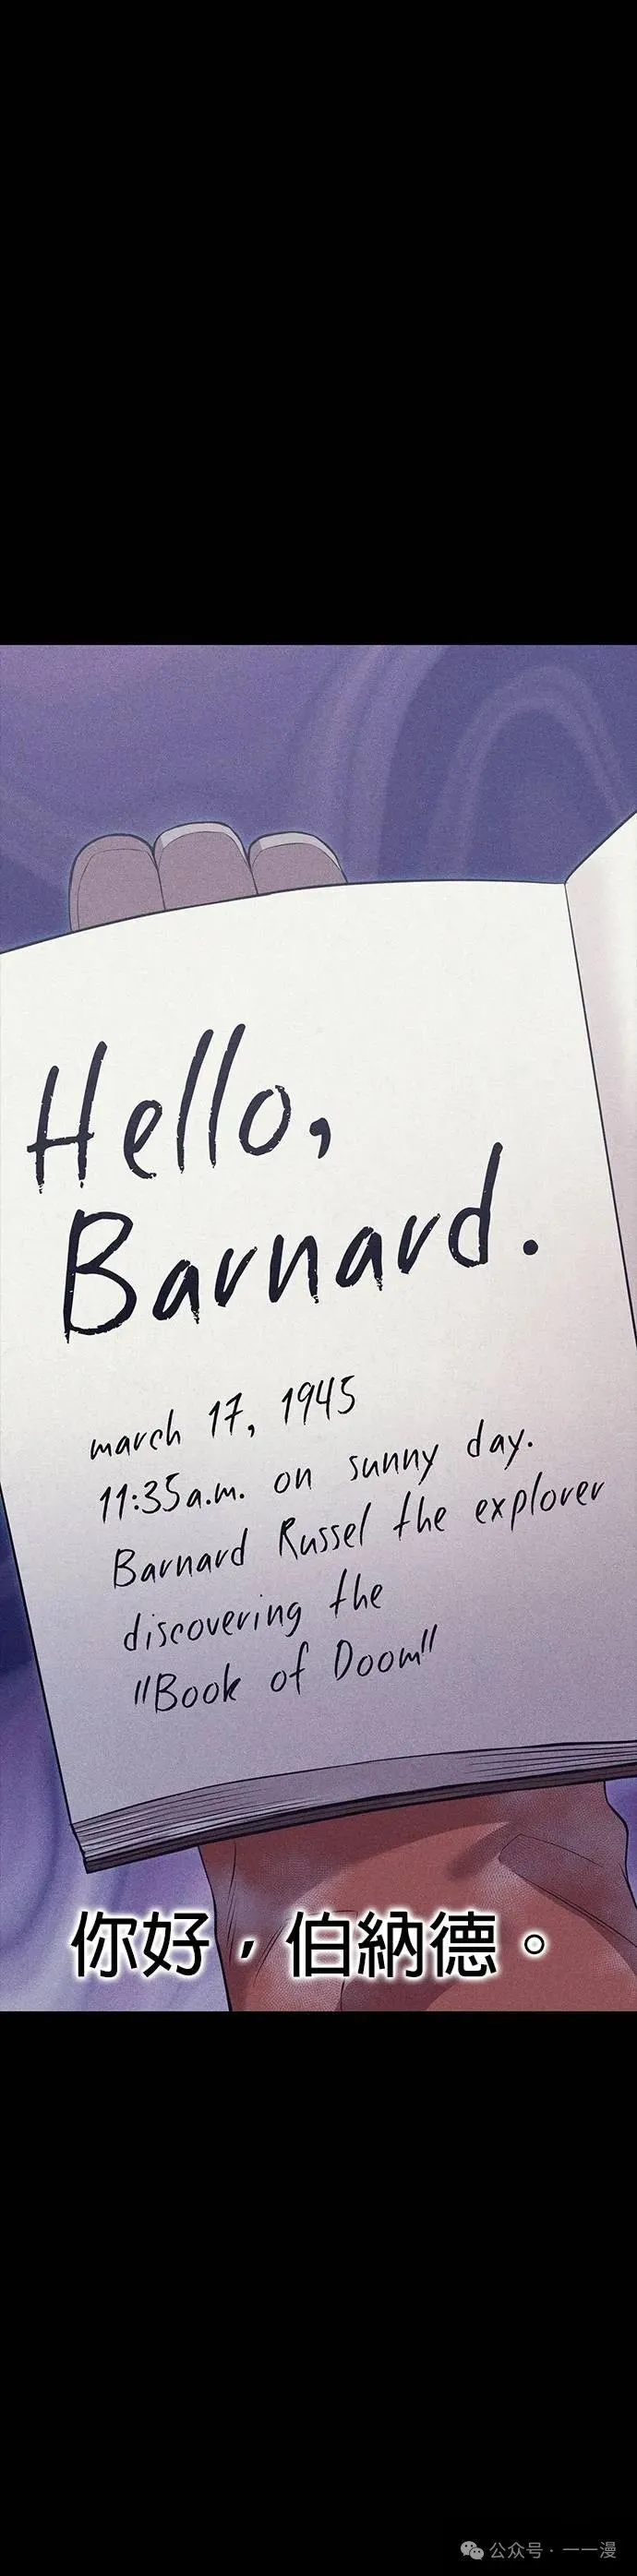 Hello,
Barnard.
march 17, 1945
11:35a.m. on sunny day.
Barnard Russel the explorer
discovering the
"Book of Doom"
你好，伯納德。
公众号 · 一一漫